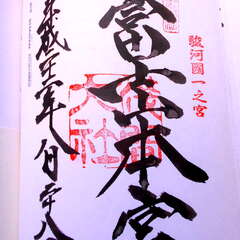 駿河國一之宮
富士本宮
浅間大社
平成二十一年八月二十八日